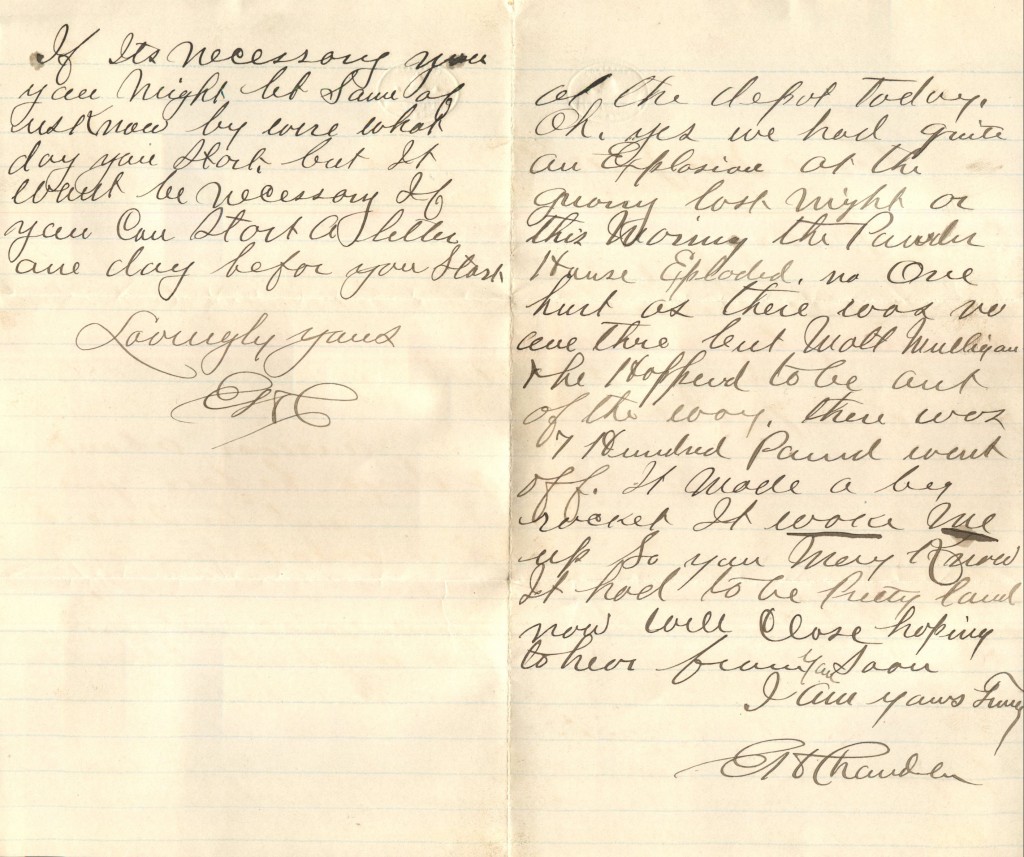 If Its necessary you
you Might let Some of
us Know by wire what
day you Start. but It
wont be necessary If
you Can Start A letter
one day befor you Start
Lovingly yours
EHC
at the depot today.
Oh. yes we had quite
an Explosion at the
quarry last night or
this Morning the Powder
House Exploded. no One
hurt as there was no
one thre but Walt Mulligan
& he Happend to be out
of the way. there was
7 Hundred Pound went
off. It Made a big
racket It woke Me
up So you May Know
It had to be Pretty loud
now will Close hoping
to hear from you Soon
I am yours Truly
EH